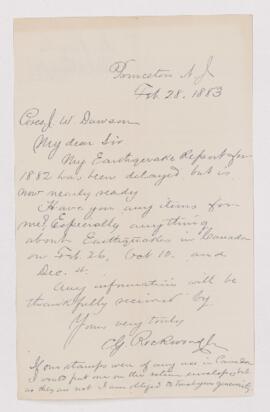 Princeton N J
Feb. 28. 1883
Prof. J. W. Dawson
My dear Sir
My Earthquake Report for
1882 has been delayed but is
now nearly ready
Have you any items for
me? Especially anything
about Earthquakes in Canada
on Feb 26, Oct 10. and
Dec. 4.
Any information will be
thankfully received by
Yours very truly
C G Rockwood Jr
If our stamps were of any use in Canada
I would put one on the return envelope, but
as they are not I am obliged to trust your generosity